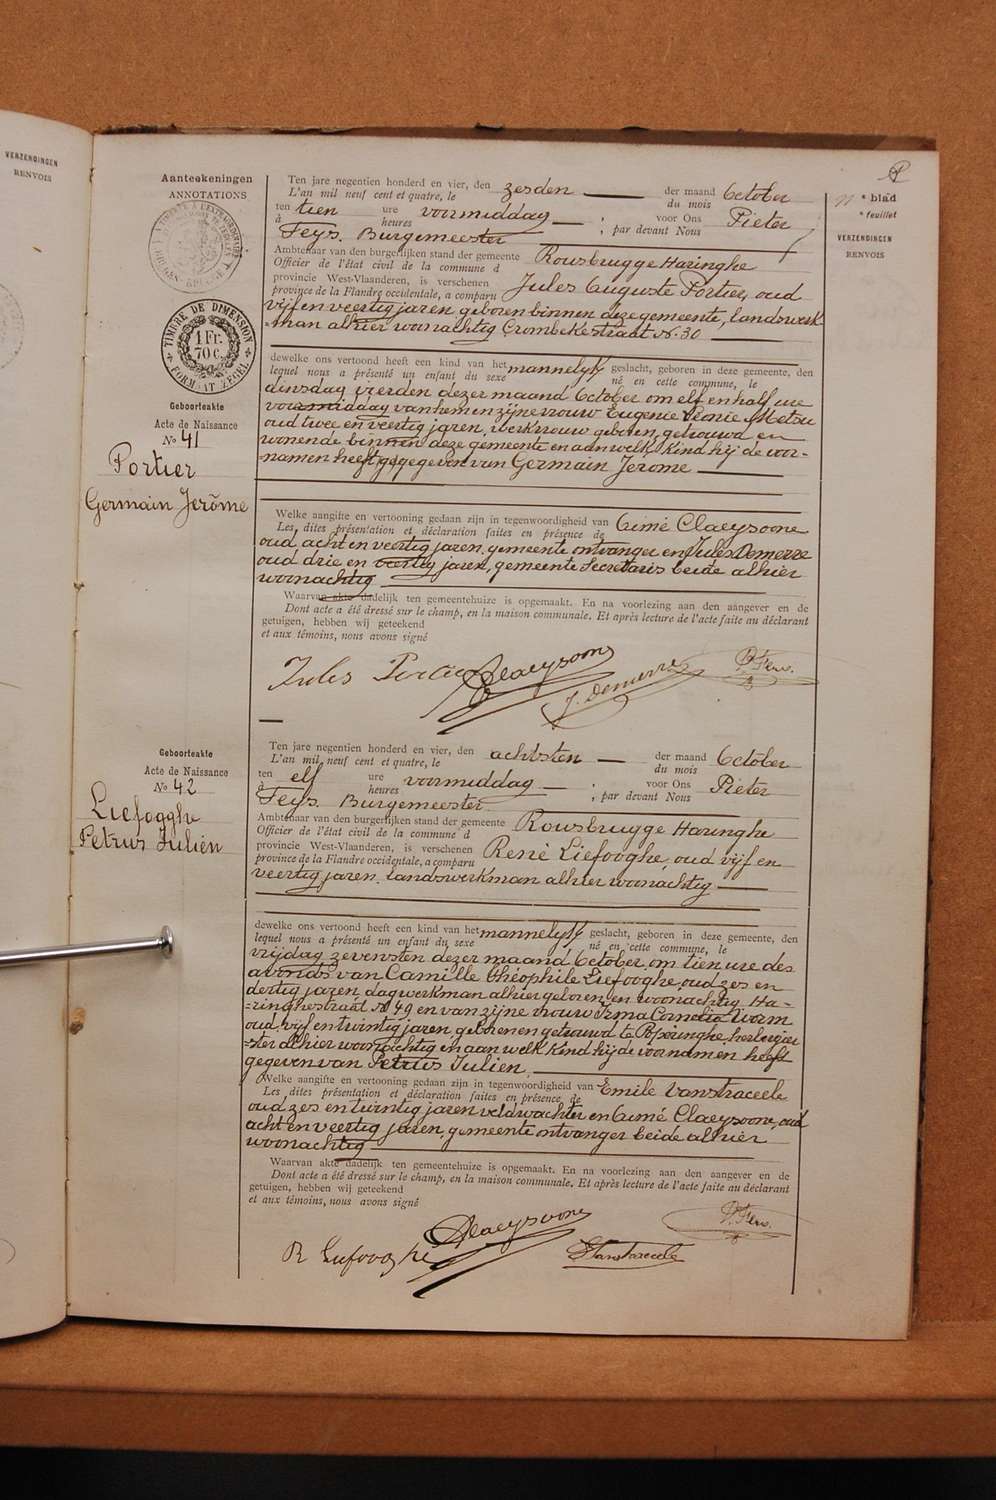 VERZENDINGEN
RENVOIS
Aanteekeningen
ANNOTATIONS
TIMBRE DE DIMENSION
1 Fr.
70 c.
FORMAAT ZEGEL
Geboorteakte
Acte de Naissance
No 41
Portier
Germain Jerôme
Ten jare negentien honderd en vier, den zesden der maand October
L'an mil neuf cent et quatre, le du mois
ten tien ure voormiddag, voor Ons Pieter
à heures , par devant Nous
Feys, Burgemeester
Ambtenaar van den burgerlijken stand der gemeente Rousbrugge Haringhe
Officier de l'état civil de la commune d
provincie West-Vlaanderen, is verschenen Jules Auguste Portier, oud
province de la Flandre occidentale, a comparu
vijf en veertig jaren, geboren binnen deze gemeente, landswerk-
=man alhier woonachtig Crombekestraat No. 30
dewelke ons vertoond heeft een kind van het mannelyk geslacht, geboren in deze gemeente, den
lequel nous a présenté un enfant du sexe né en cette commune, le
dinsdag vierden dezer maand October om elf en half ure
voormiddag van hem en zijne vrouw Eugenie Leonie Metsu
oud twee en veertig jaren, werkvrouw geboren, getrouwd en
wonende binnen deze gemeente en aan welk kind hij de voor-
-namen heeft gegegeven van Germain Jerome
Welke aangifte en vertooning gedaan zijn in tegenwoordigheid van Aimé Claeysoone
Les dites présentation et déclaration faites en présence de
oud acht en veertig jaren, gemeente ontvanger en Jules Demerre
oud drie en veertig jaren, gemeente Secretaris beide alhier
woonachtig
Waarvan akte dadelijk ten gemeentehuize is opgemaakt. En na voorlezing aan den aangever en de
Dont acte a été dressé sur le champ, en la maison communale. Et après lecture de l'acte faite au déclarant
getuigen, hebben wij geteekend
et aux témoins, nous avons signé
Jules Portier Claeysoone J. Demerre P. Feys.
Geboorteakte
Acte de Naissance
No 42
Liefooghe
Petrus Julien
Ten jare negentien honderd en vier, den achtsten der maand October
L'an mil neuf cent et quatre, le du mois
ten elf ure voormiddag, voor Ons Pieter
à heures , par devant Nous
Feys, Burgemeester
Ambtenaar van den burgerlijken stand der gemeente Rousbrugge Haringhe
Officier de l'état civil de la commune d
provincie West-Vlaanderen, is verschenen René Liefooghe, oud vijf en
province de la Flandre occidentale, a comparu
veertig jaren, landswerkman alhier woonachtig
dewelke ons vertoond heeft een kind van het mannelyk geslacht, geboren in deze gemeente, den
lequel nous a présenté un enfant du sexe né en cette commune, le
vrijdag zevensten dezer maand October om tien ure des
avonds van Camille Théophile Liefooghe, oud zes en
dertig jaren, dagwerkman alhier geboren, en woonachtig Ha-
=ringhestraat No 49 en van zijne vrouw Irma Cornelia Worm
oud vijf en twintig jaren, geboren en getrouwd te Poperinghe, herbergier
=ster alhier woonachtig en aan welk Kind hij de voornamen heeft
gegeven van Petrus Julien.
Welke aangifte en vertooning gedaan zijn in tegenwoordigheid van Emile Vanstraceele
Les dites présentation et déclaration faites en présence de
oud zes en twintig jaren veldwachter en Aimé Claeysoone, oud
acht en veertig jaren, gemeente ontvanger beide alhier
woonachtig
Waarvan akte dadelijk ten gemeentehuize is opgemaakt. En na voorlezing aan den aangever en de
Dont acte a été dressé sur le champ, en la maison communale. Et après lecture de l'acte faite au déclarant
getuigen, hebben wij geteekend
et aux témoins, nous avons signé
R Liefooghe Claeysoone EVanstraceele P. Feys.
e blad
e feuillet
VERZENDINGEN
RENVOIS